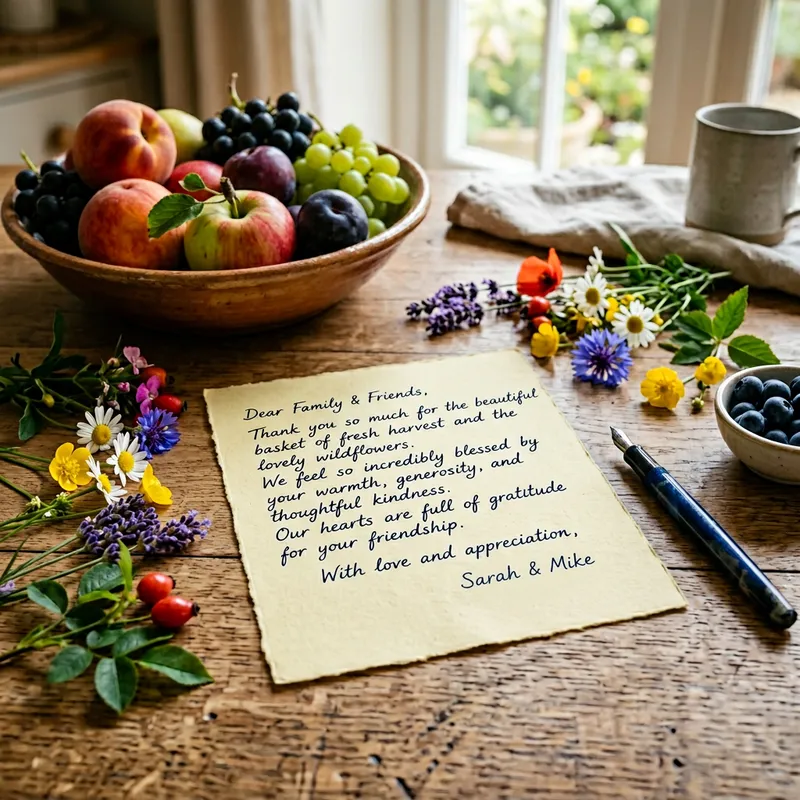 Dear Family & Friends,
Thank you so much for the beautiful
basket of fresh harvest and the
lovely wildflowers.
We feel so incredibly blessed by
your warmth, generosity, and
thoughtful kindness.
Our hearts are full of gratitude
for your friendship.
With love and appreciation,
Sarah & Mike